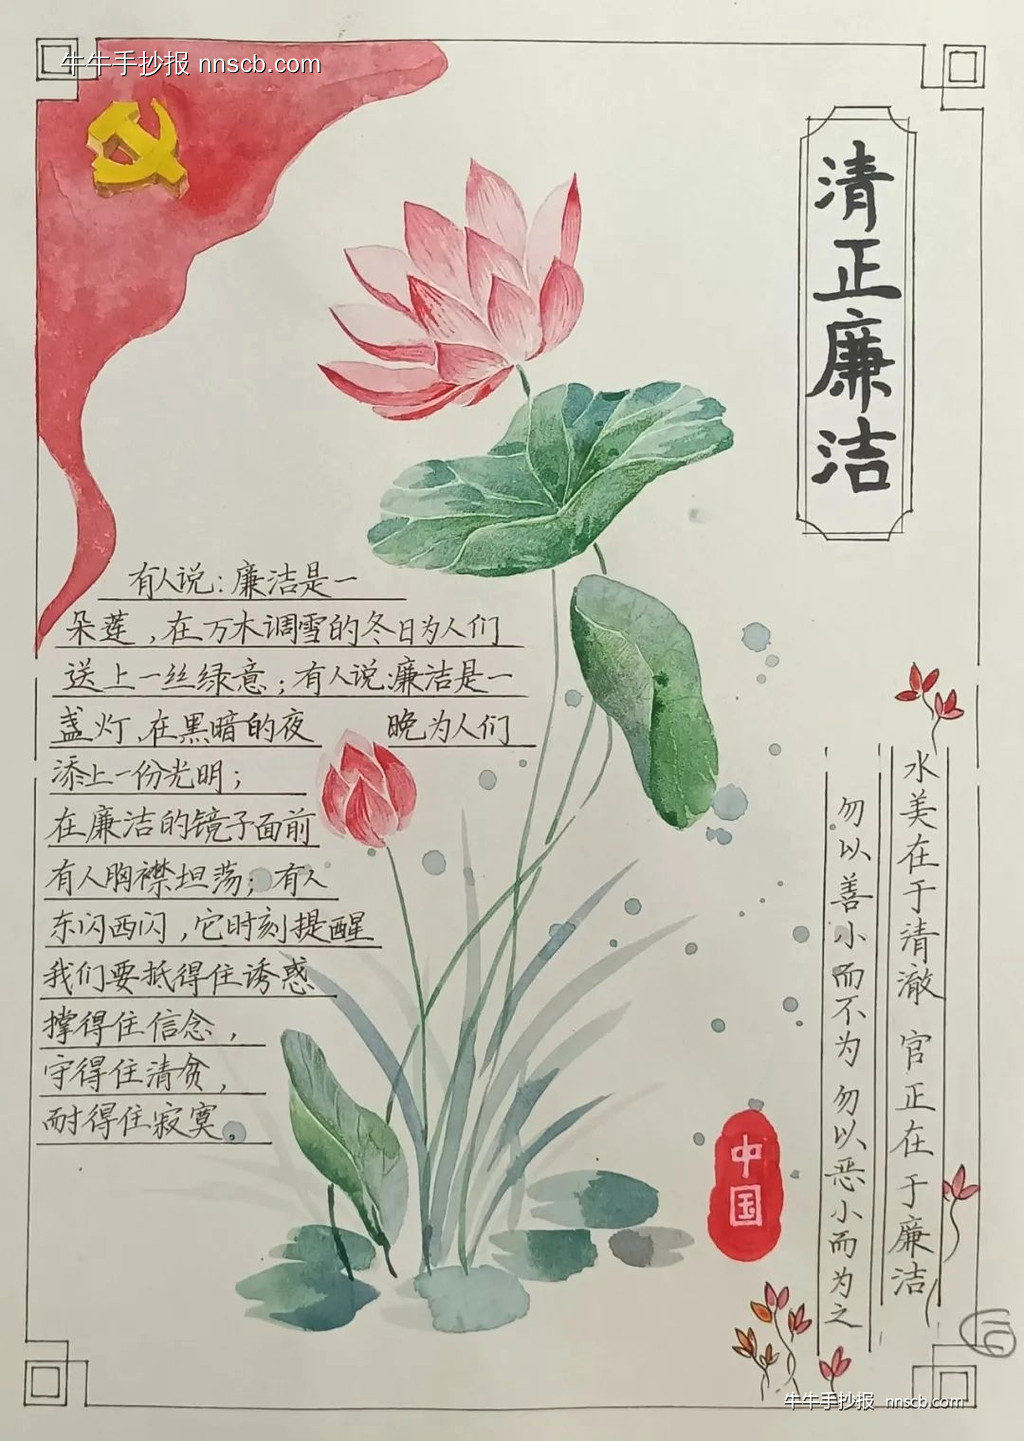 牛牛手抄报 nnscb.com
清正廉洁
有人说:廉洁是一
朵莲,在万木调雪的冬日为人们
送上一丝绿意;有人说:廉洁是一
盏灯,在黑暗的夜 晚为人们
添上一份光明;
在廉洁的镜子面前
有人胸襟坦荡;有人
东闪西闪,它时刻提醒
我们要抵得住诱惑
撑得住信念,
守得住清贫,
耐得住寂寞。
水美在于清澈 官正在于廉洁
勿以善小而不为 勿以恶小而为之
中国
牛牛手抄报 nnscb.com